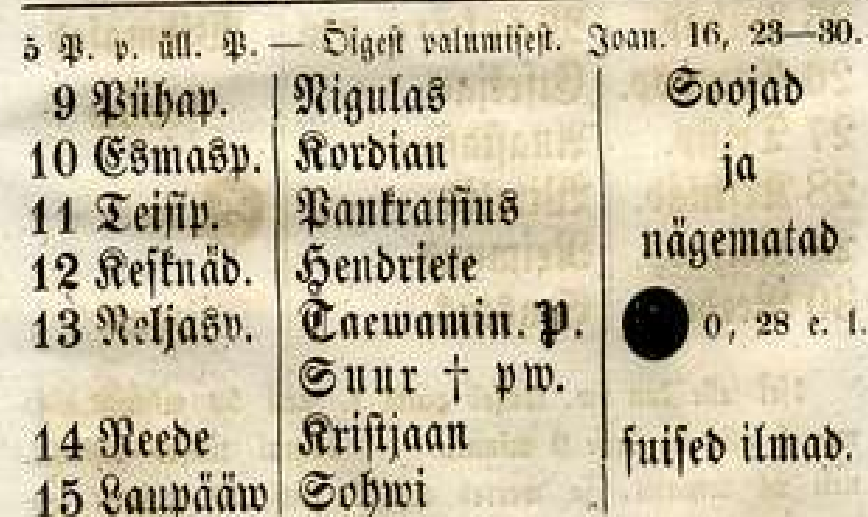 5 P. p. üll. P. — Õigest palumisest. Joan. 16, 23—30.
9 Pühap. Nigulas Soojad
10 Esmasp. Kordian ja
11 Teisip. Pankratsius
nägematad
12 Kesknäd. Hendriete
13 Neljasp. Taewamin. P. 0, 28 e. l.
Suur † pw.
14 Reede Kristjaan suised ilmad.
15 Laupääw Sohwi